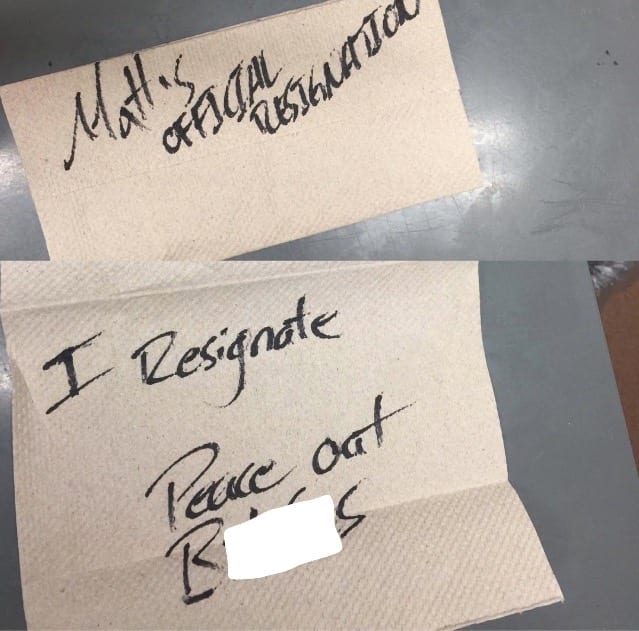 Matt's
OFFICIAL
RESIGNATION
I Resignate
Peace out